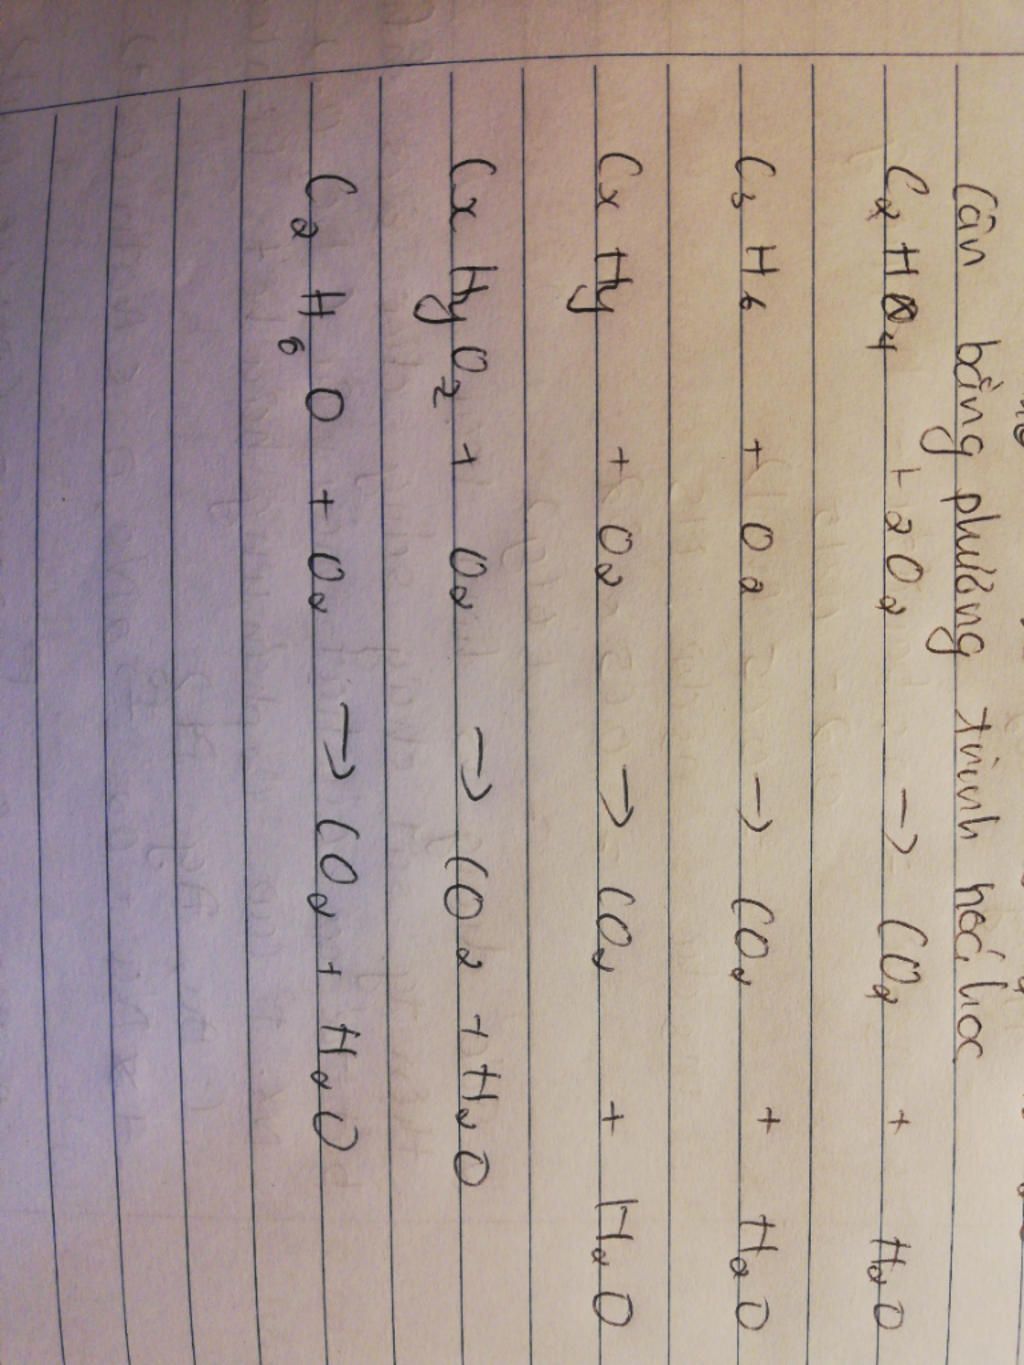 Cân bằng phương trình hoá học
C₂H₄ + 2O₂ → CO₂ + H₂O
C₃H₆ + O₂ → CO₂ + H₂O
CxHy + O₂ → CO₂ + H₂O
CxHyO₂ + O₂ → CO₂ + H₂O
C₂H₆O + O₂ → CO₂ + H₂O